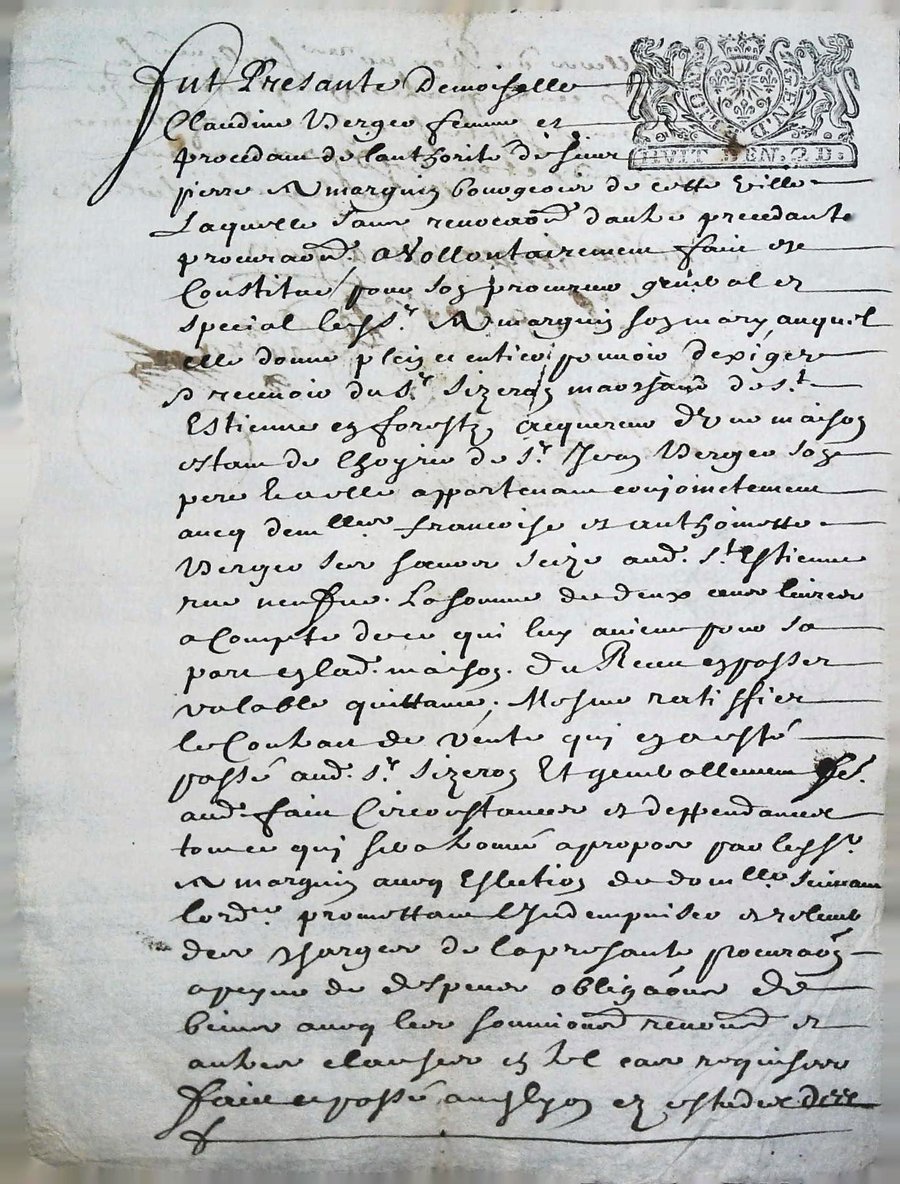 fut Presante Demoiselle
Claudine Verger femme et
procedant de l'authorité de sieur
HUIT DEN. 2 D.
pierre marguin bourgeois de cette Ville
Laquelle sans revocaõn d'autre precedante
procuraõn a Vollontairement fait et
Constitué pour son procureur general et
special led Sr. marguin son mary auquel
elle donne plein et entier pouvoir d'exiger
& recevoir du Sr. Sizeron marchand de St.
Estienne en forestz, acquereur d'une maison
estant de l'hoyrie de Sr. Jean Verger son
pere Laquelle appartenant conjoinctement
avecq demlles francoise et anthoinette
Verger ses soeurs seize aud. St. Estienne
rue neufve. La somme de deux cens livres
a Compte de ce qui luy avient pour sa
part en lad. maison. Du Receu en passer
valable quittance, Mesme rattiffier
le Contract de Vente qui en a esté
passé aud. Sr. Sizeron Et generallement
aud. fait Circonstances et deppendances
tout ce qui sera treuvé a propos par led Sr.
marguin avecq Eslection de domlle suivant
lordce promettant l'Indempniser et relever
des Charges de la presante procuraõn
a peyne de despens obligaõns de
biens avecq les soumions renonõns et
autres clauses en tel cas requises
faict et passé a Lyon en estude